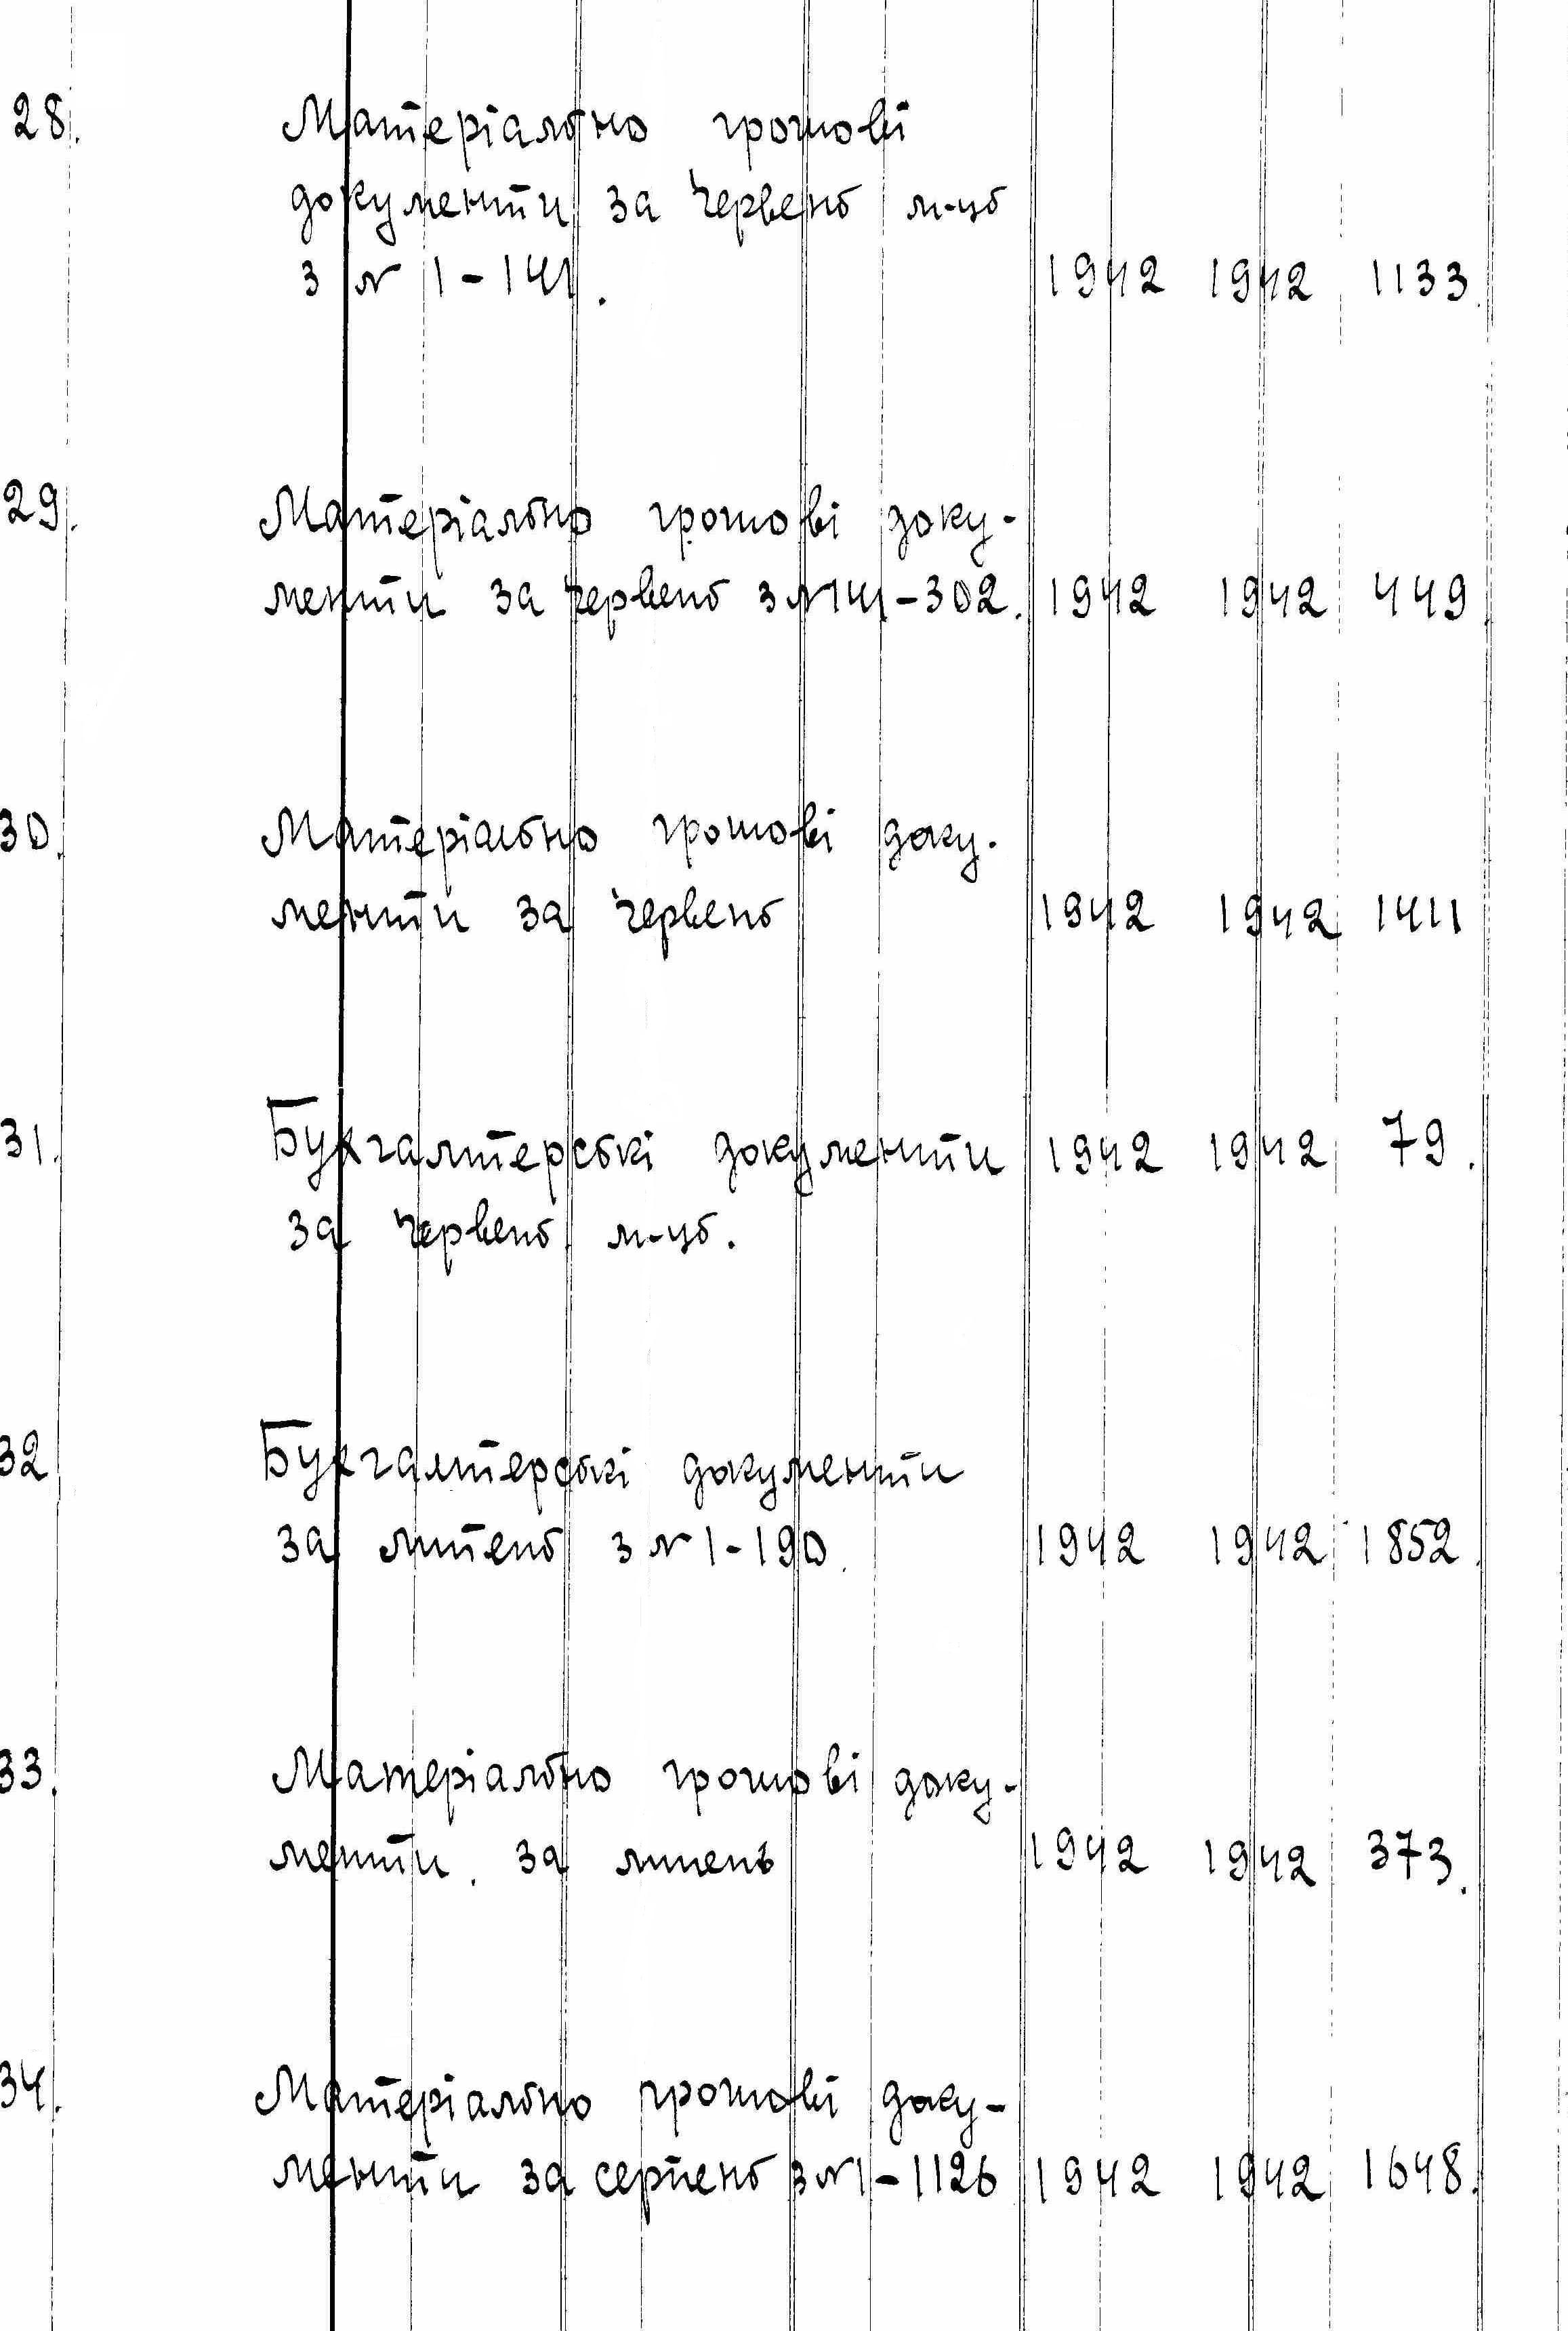 28. Матеріально грошові
документи за червень м-ць
з № 1-141. 1942 1942 1133.
29. Матеріально грошові доку-
менти за червень з №141-302. 1942 1942 449.
30. Матеріально грошові доку-
менти за червень 1942 1942 1411
31. Бухгалтерські документи 1942 1942 79.
за червень м-ць.
32 Бухгалтерські документи
за липень з №1-190. 1942 1942 1852.
33. Матеріально грошові доку-
менти за липень 1942 1942 373.
34. Матеріально грошові доку-
менти за серпень з №1-1126 1942 1942 1648.